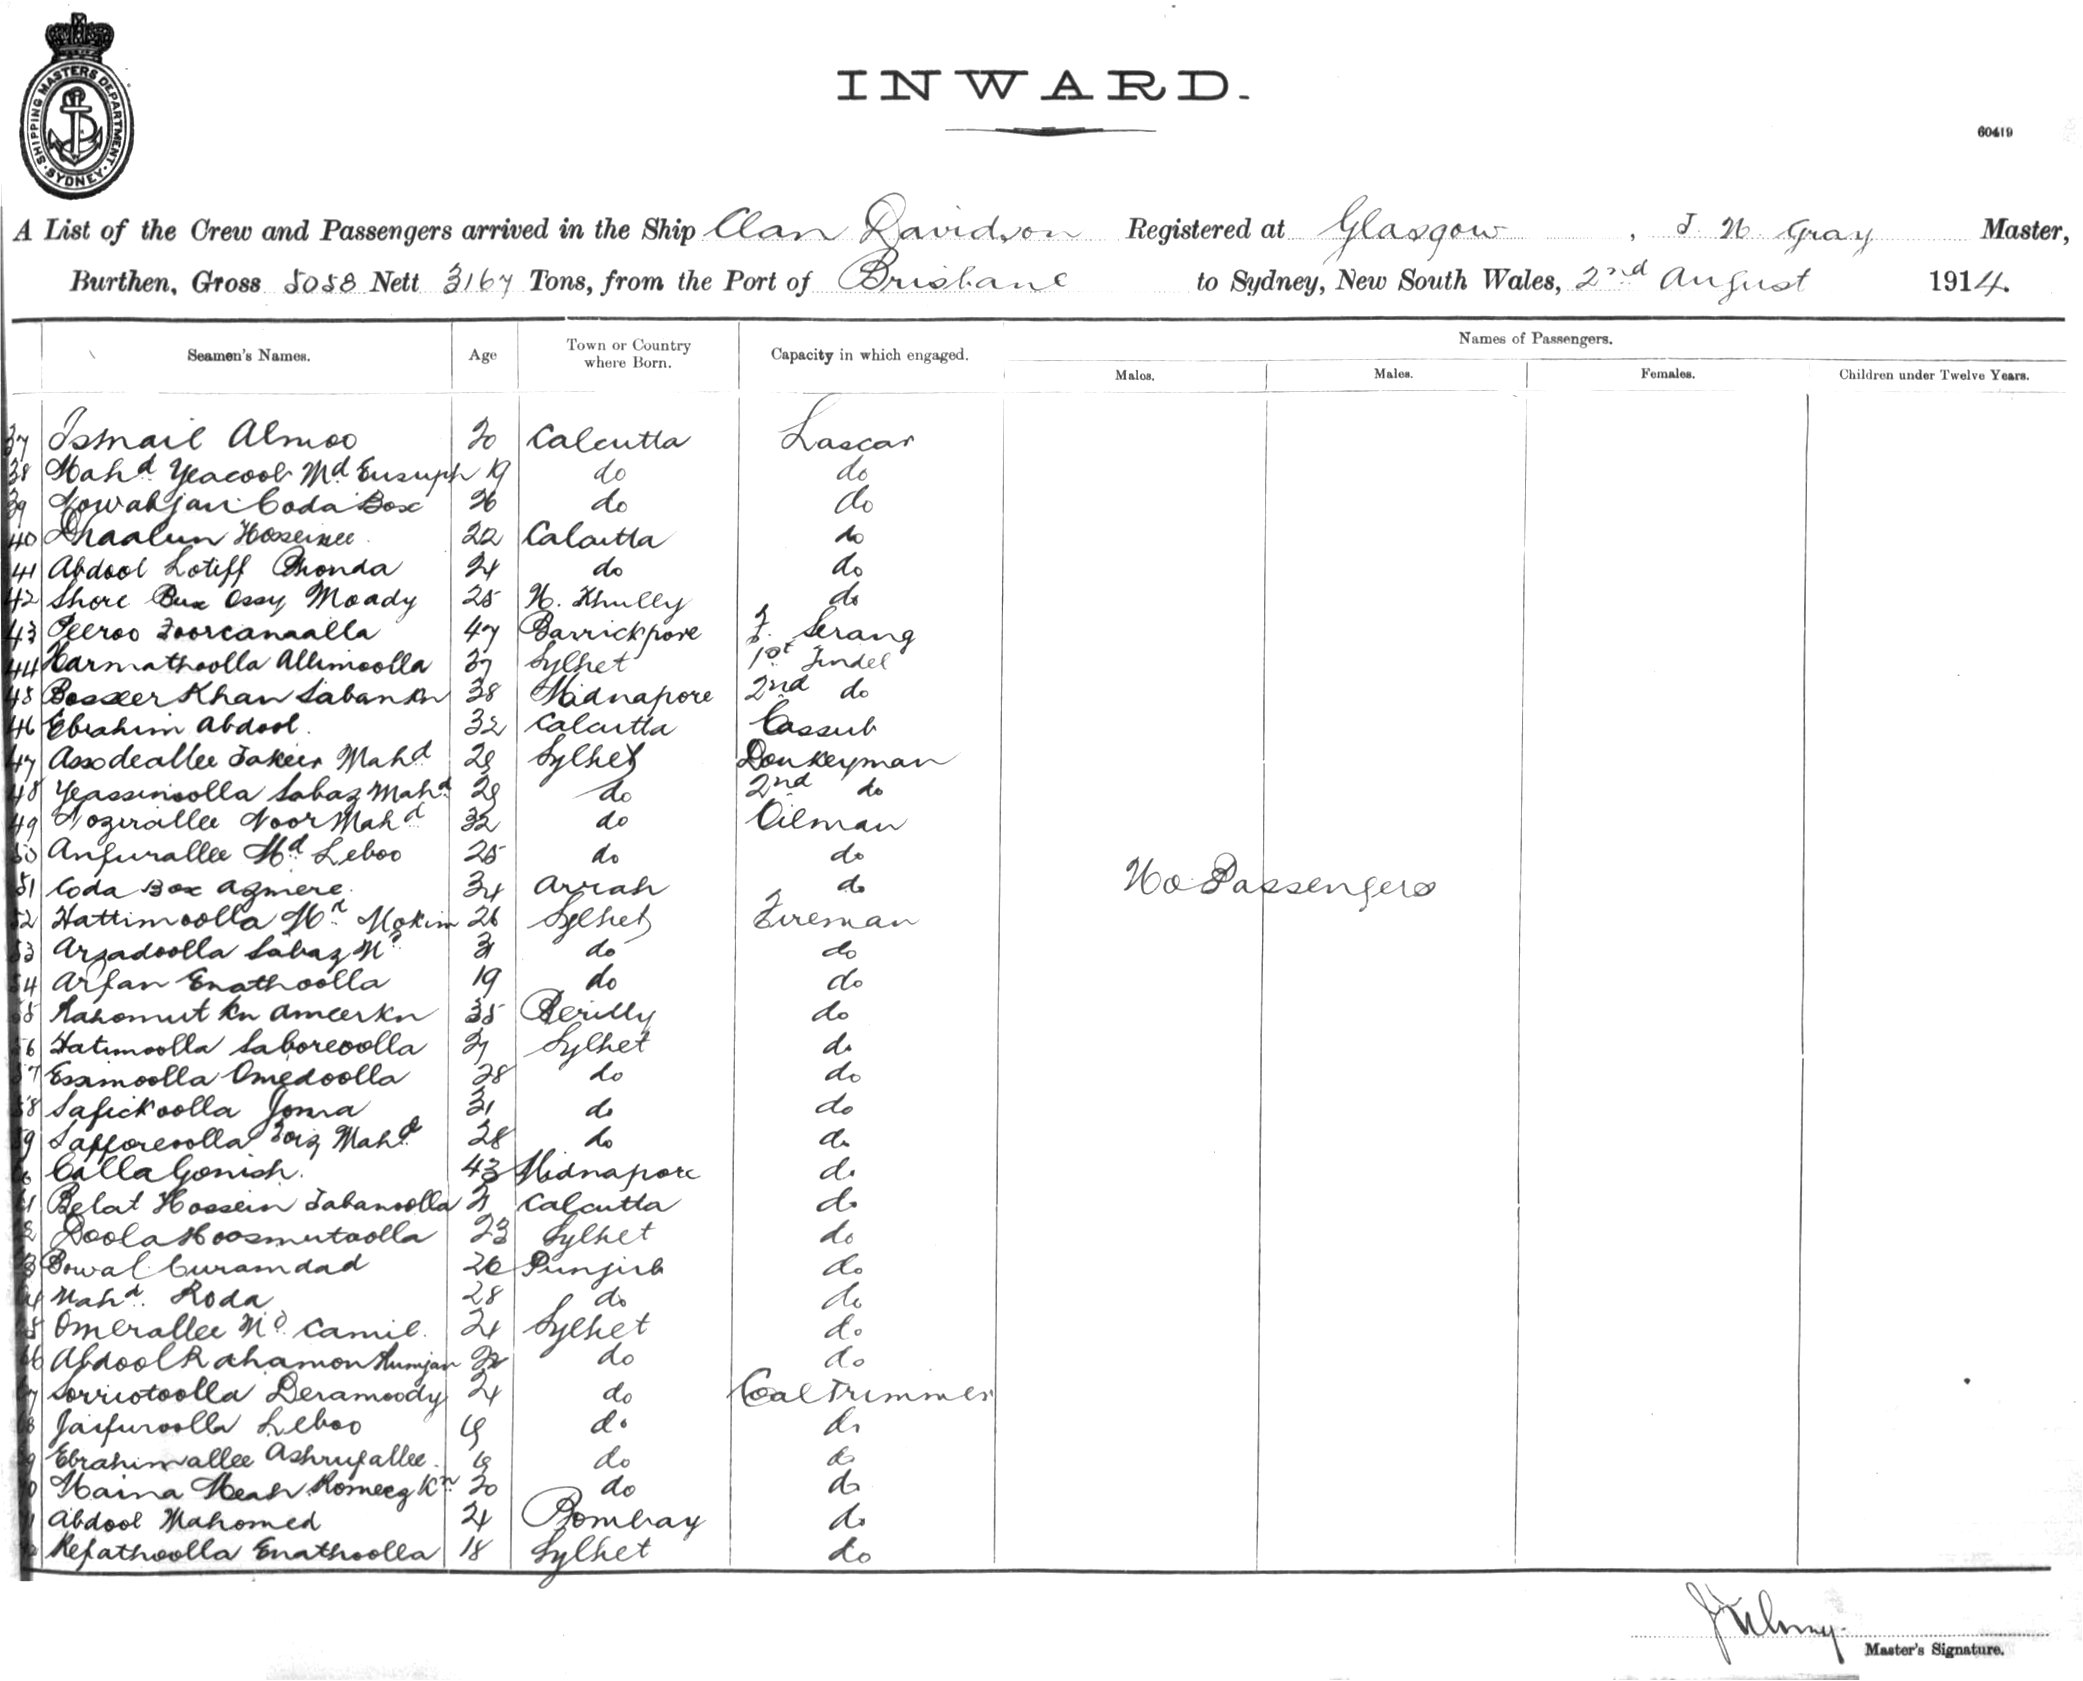 SHIPPING MASTERS DEPARTMENT SYDNEY
INWARD.
60419
A List of the Crew and Passengers arrived in the Ship Clan Davidson Registered at Glasgow, J. N. Gray Master,
Burthen, Gross 5058 Nett 3167 Tons, from the Port of Brisbane to Sydney, New South Wales, 2nd August 1914.
Seamen's Names. Age Town or Country where Born. Capacity in which engaged. Names of Passengers.
Males. Males. Females. Children under Twelve Years.
37 Ismail Almoo 20 Calcutta Lascar
38 Mahd Yeacoob Md Eusuph 19 do do
39 Nowabjan Coda Box 26 do do
40 Hosseinee 22 Calcutta do
41 Abdool Lotiff 24 do do
42 Shore Bux Ossy Moody 25 N. Khully do
43 Peeroo 47 Barrickpore F. Serang
44 Harmathoolla Allimoolla 37 Sylhet 1st Tindel
45 Bosseer Khan Saban Kn 38 Midnapore 2nd do
46 Ebrahim Abdool. 32 Calcutta Cassub
47 Assodeallee Fakeer Mahd 29 Sylhet Donkeyman
48 Yeassinoolla Sabaz Mahd 29 do 2nd do
49 Nozirallee Noor Mahd 32 do Oilman
50 Anfurallee Md Leboo 25 do do
51 Coda Box Azmere. 34 Arrah do
No Passengers
52 Hattimoolla Md Mokim 26 Sylhet Fireman
53 Arzadoolla Sabaz Md 31 do do
54 Arfan Enathoolla 19 do do
55 Rahomut Kn Ameer Kn 35 Berilly do
56 Hatimoolla Saboreoolla 37 Sylhet do
57 Essimoolla Omedoolla 28 do do
58 Safickoolla Joma 31 do do
59 Safforeoolla Foiz Mahd 28 do do
60 Calla Gonish. 43 Midnapore do
61 Belat Hossein 21 Calcutta do
62 Doola Hoosmutoolla 23 Sylhet do
63 Bowal Curamdad 26 Punjab do
64 Mahd. Roda 28 do do
65 Omerallee Md Camil. 24 Sylhet do
66 Abdool Rahamon Rumjan 22 do do
67 Sorriotoolla Deramoody 24 do Coal Trimmer
68 Jaifuroolla Leboo 19 do do
69 Ebrahimallee Ashrufallee. 19 do do
70 Maina Meah Romeez Kn 20 do do
71 Abdool Mahomed 24 Bombay do
72 Refathoolla Enathoolla 18 Sylhet do
Master's Signature.